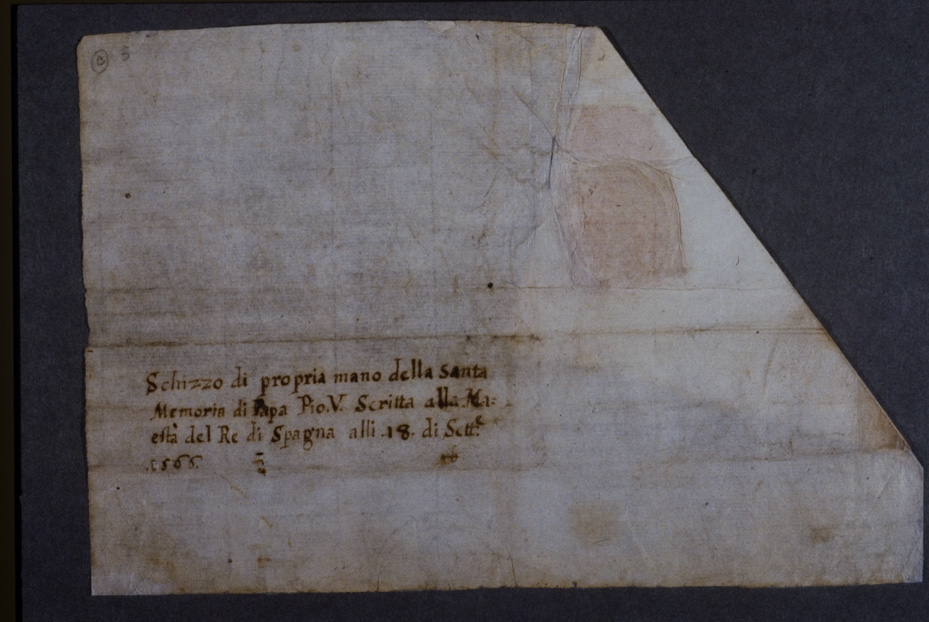 Schizzo di propria mano della Santa
Memoria di Papa Pio.V. Scritta alla Ma=
està del Re di Spagna alli .18. di Sett.e
.1566.